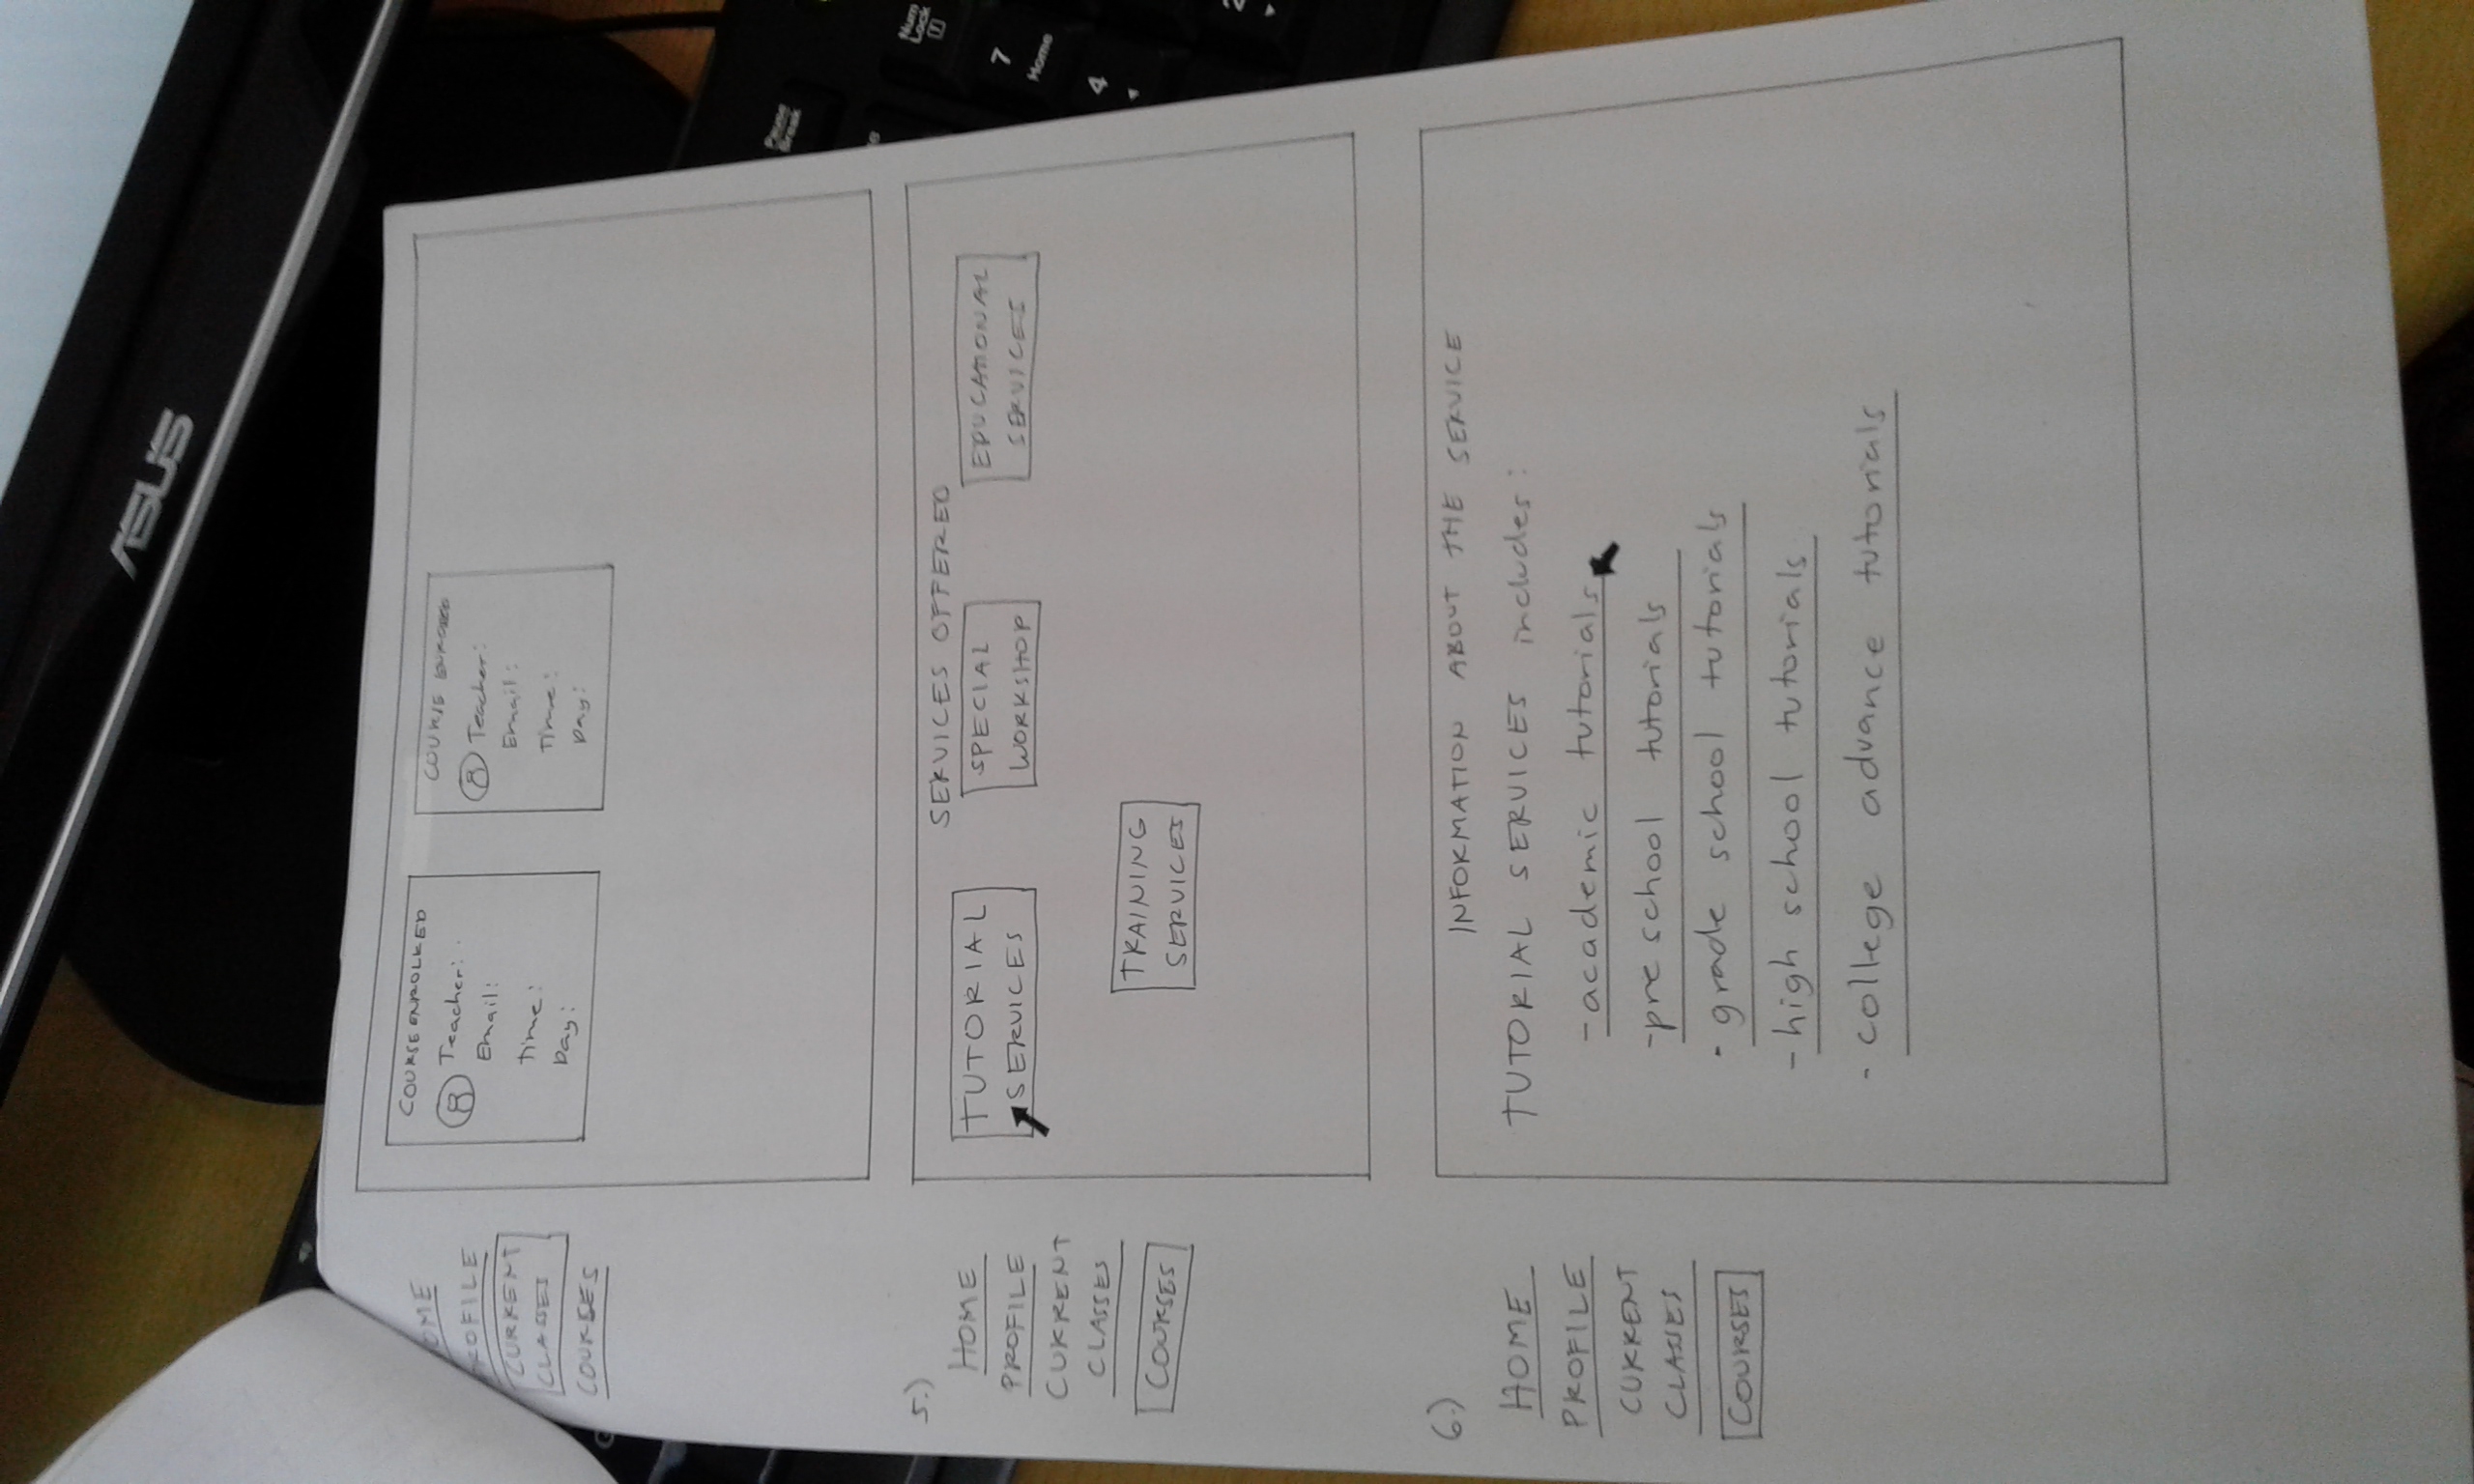 ASUS
OME
ROFILE
CURRENT
CLASSES
COURSES
COURSE ENROLLED
Teacher:
Email:
Time:
Day:
COURSE
Teacher:
Email:
Time:
Day:
5.)
HOME
PROFILE
CURRENT
CLASSES
COURSES
SERVICES OFFERED
TUTORIAL
SERVICES
SPECIAL
WORKSHOP
EDUCATIONAL
SERVICES
TRAINING
SERVICES
6.)
HOME
PROFILE
CURRENT
CLASSES
COURSES
INFORMATION ABOUT THE SERVICE
TUTORIAL SERVICES includes:
- academic tutorials
- pre school tutorials
- grade school tutorials
- high school tutorials
- college advance tutorials
Pause
Break
Num
Lock
7
Home
4
2